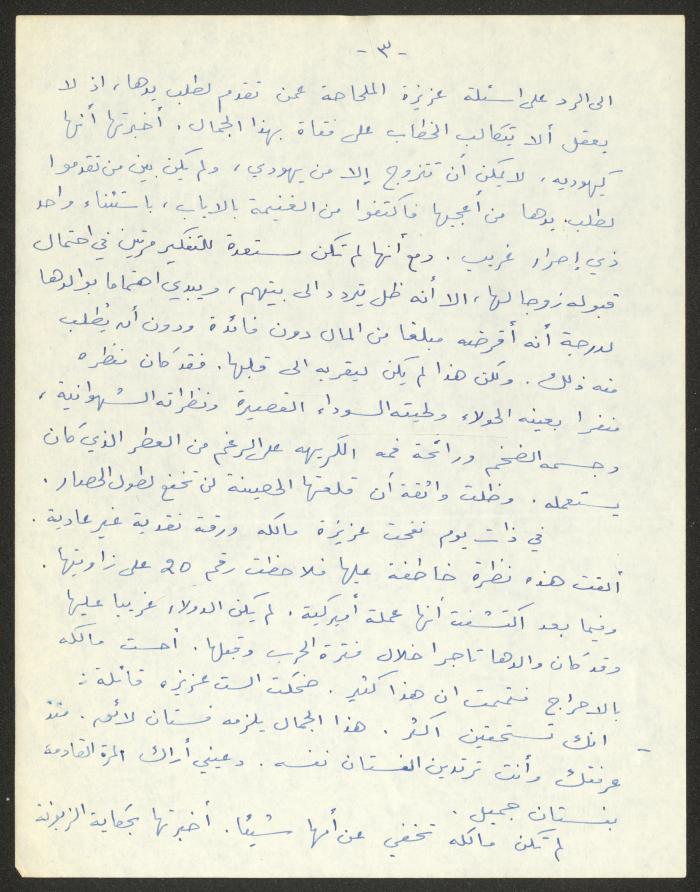 - ٣ -
الى الرد على اسئلة عزيزة الملحاحة عمن تقدم لطلب يدها، اذ لا
يعقل ألا يتكالب الخطاب على فتاة بهذا الجمال. أخبرتها أنها
كيهوديه، لا يمكن أن تتزوج إلا من يهودي، ولم يكن بين من تقدموا
لطلب يدها من أعجبها فاكتفوا من الغنيمة بالاياب، باستثناء واحد
ذي إصرار غريب. ومع أنها لم تكن مستعدة للتفكير مرتين في احتمال
قبوله زوجا لها، الا أنه ظل يتردد الى بيتهم، ويبدي اهتماما بوالدها
لدرجة أنه أقرضه مبلغا من المال دون فائدة ودون أن يُطلب
منه ذلك. ولكن هذا لم يكن ليقربه الى قلبها. فقد كان منظره
منفرا بعينه الحولاء ولحيته السوداء القصيرة ونظراته الشهوانية،
وجسمه الضخم ورائحة فمه الكريهه على الرغم من العطر الذي كان
يستعمله. وظلت واثقة أن قلعتها الحصينة لن تخضع لطول الحصار.
في ذات يوم نفحت عزيزة مالكه ورقة نقدية غير عادية.
ألقت هذه نظرة خاطفة عليها فلاحظت رقم 20 على زاويتها.
وفيما بعد اكتشفت أنها عملة أميركية. لم يكن الدولار غريبا عليها
وقد كان والدها تاجرا خلال فترة الحرب وقبلها. أحست مالكه
بالاحراج فتمتمت ان هذا كثير. ضحكت الست عزيزه قائلة:
- انك تستحقين اكثر. هذا الجمال يلزمه فستان لائق. منذ
عرفتك وأنت ترتدين الفستان نفسه. دعيني أراك المرة القادمة
بفستان جميل.
لم تكن مالكه تخفي عن أمها شيئا. أخبرتها بحكاية الزبونة